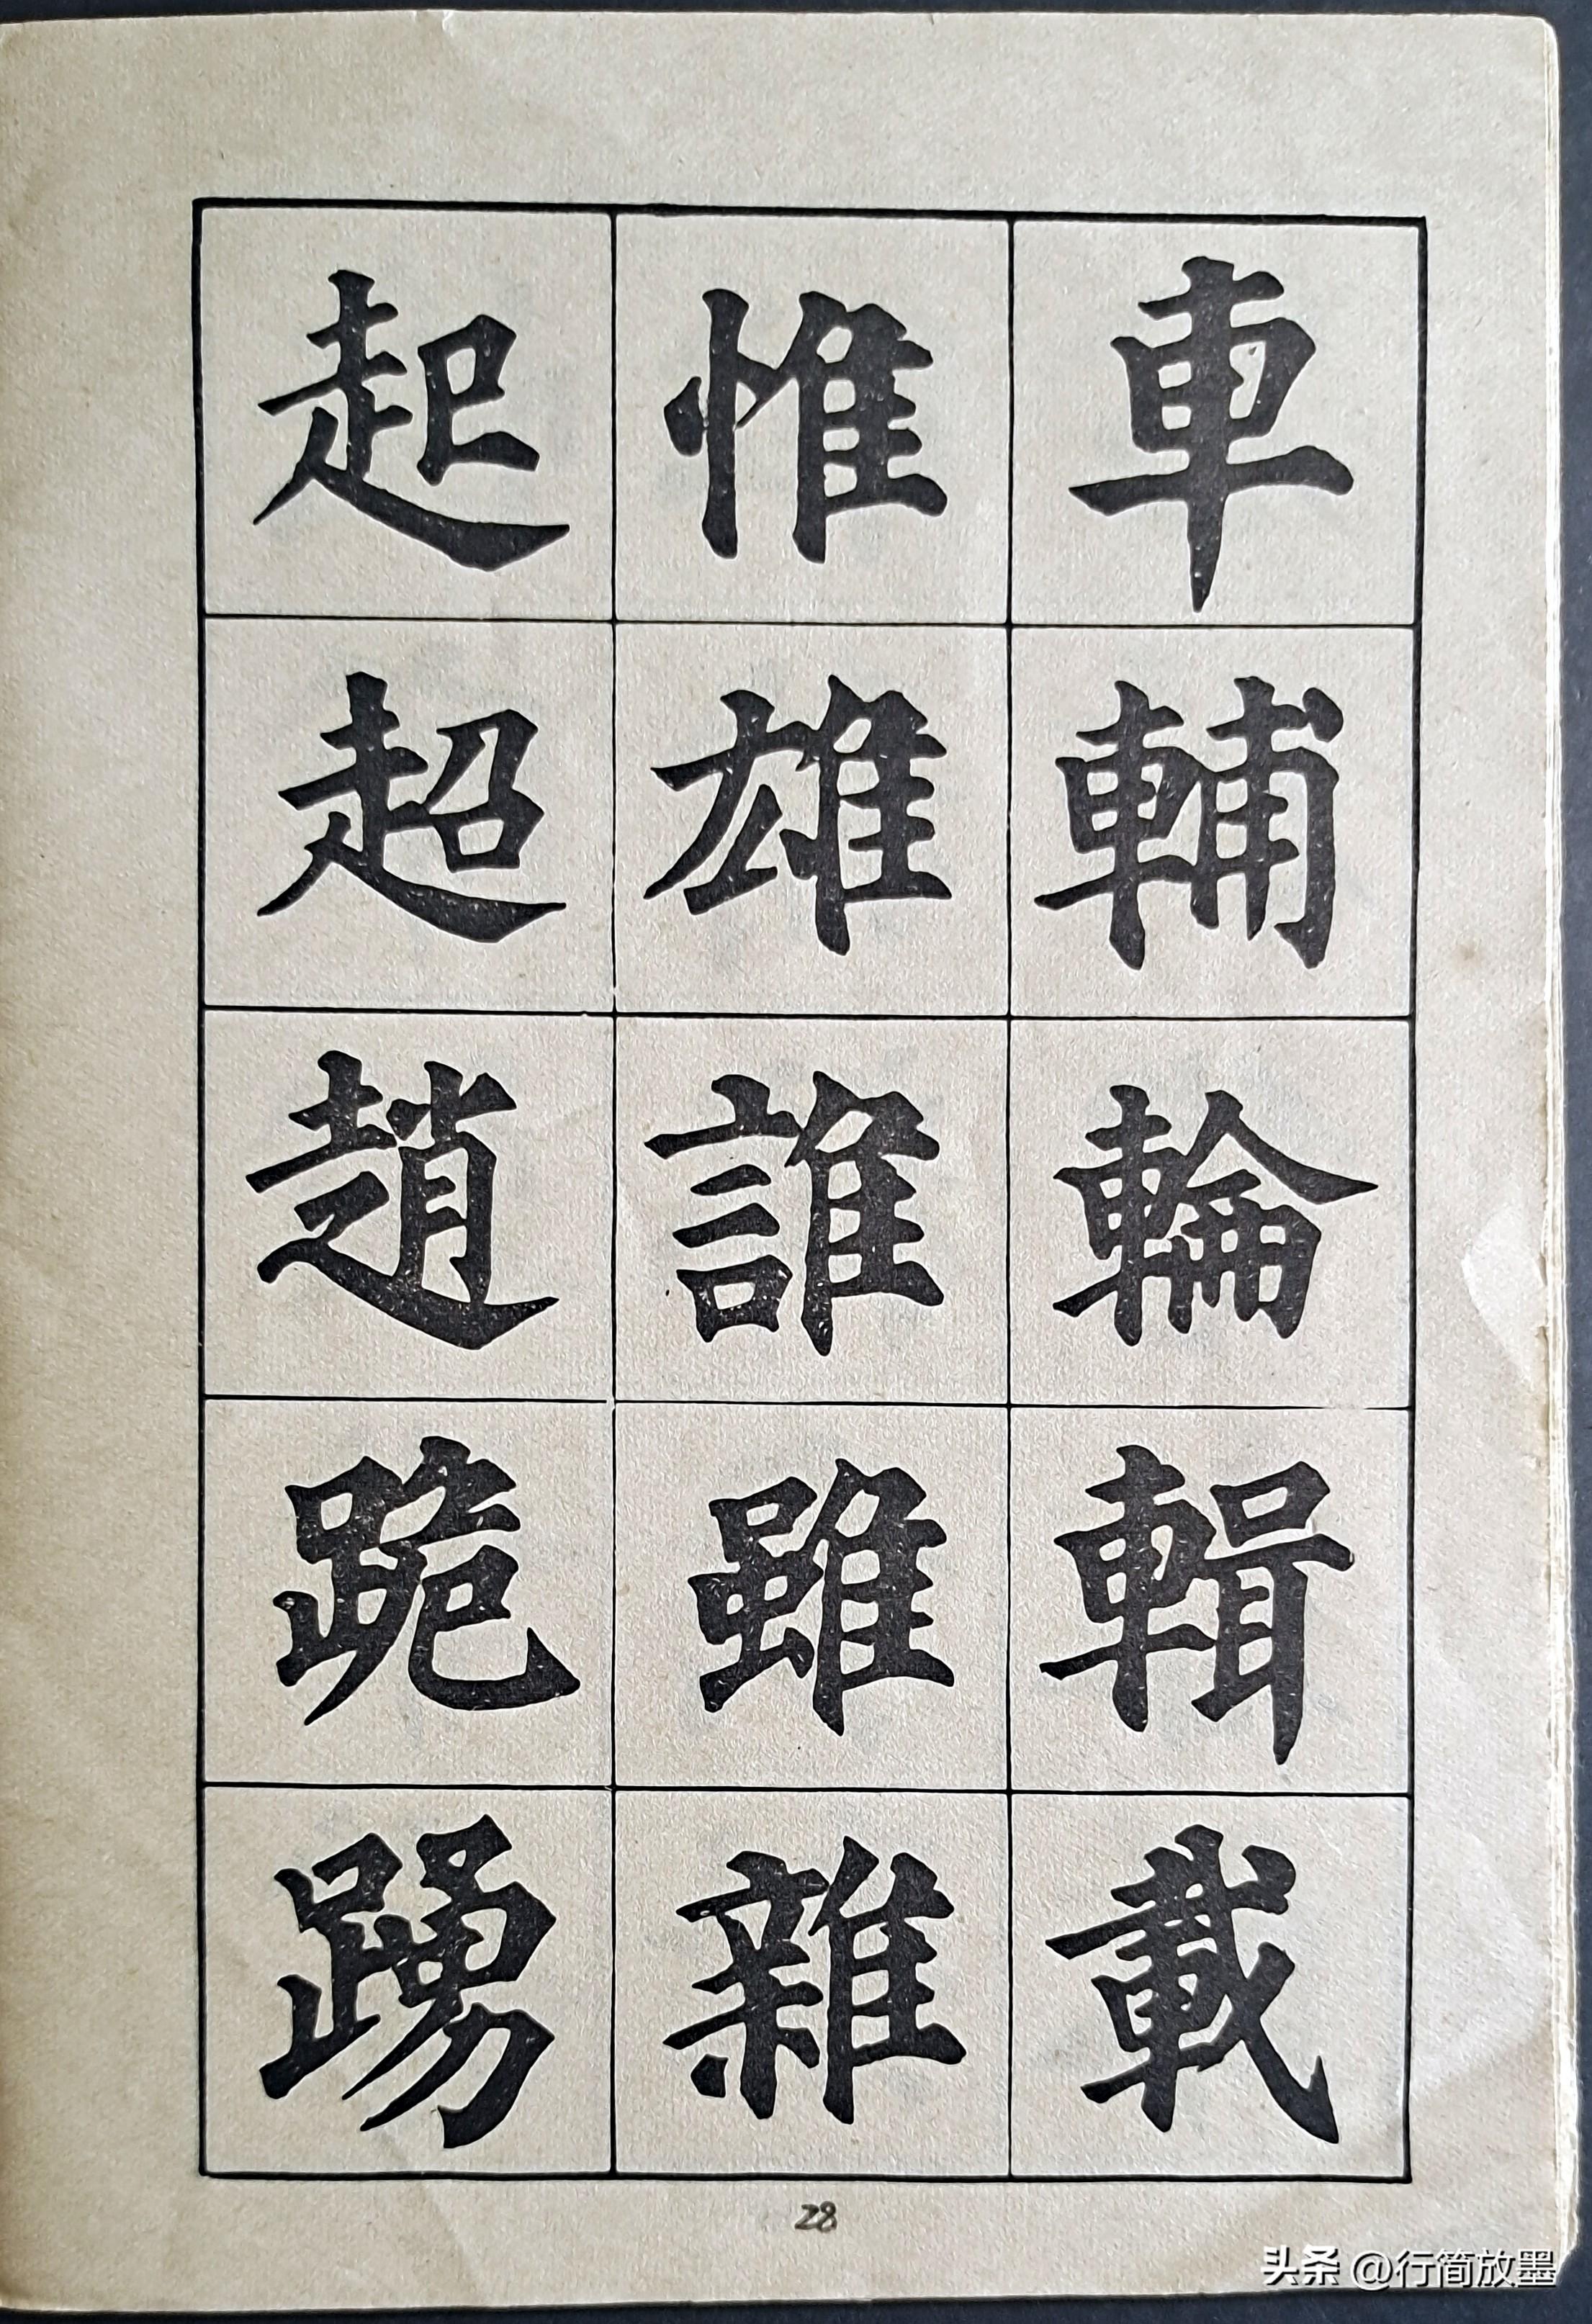 車輔輪輯載
惟雄誰雖雜
起超趙跪踴
28
头条 @行简放墨